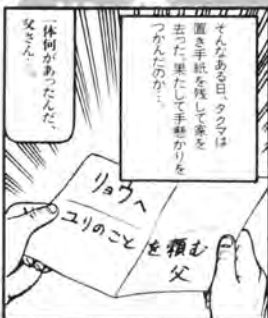 そんなある日、タクマは
置き手紙を残して家を
去った。果たして手懸かりを
つかんだのか…。
一体何があったんだ、
父さん…。
リョウへ
ユリのこと を頼む
父